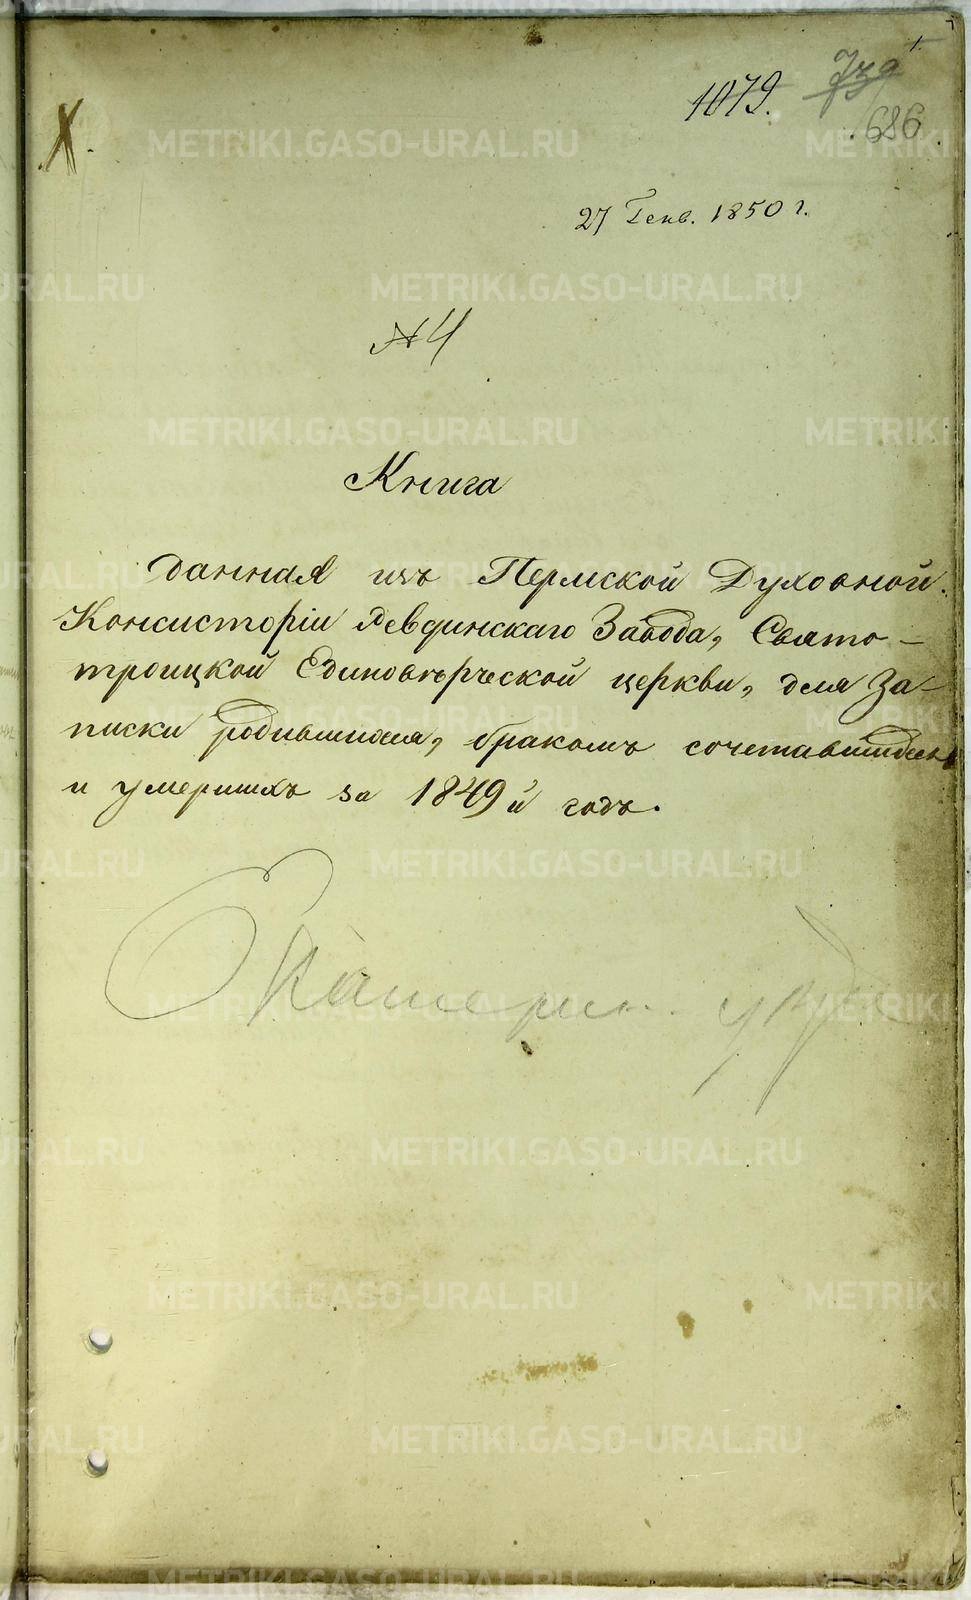 1079.
686
27 Генв. 1850 г.
№ 4
Книга
данная изъ Пермской Духовной
Консисторіи Ревдинскаго Завода, Свято-
троицкой Единовѣрческой церкви, для За-
писки родившихся, бракомъ сочетавшихся
и умершихъ за 1849й годъ.
Екатерин. у
METRIKI.GASO-URAL.RU